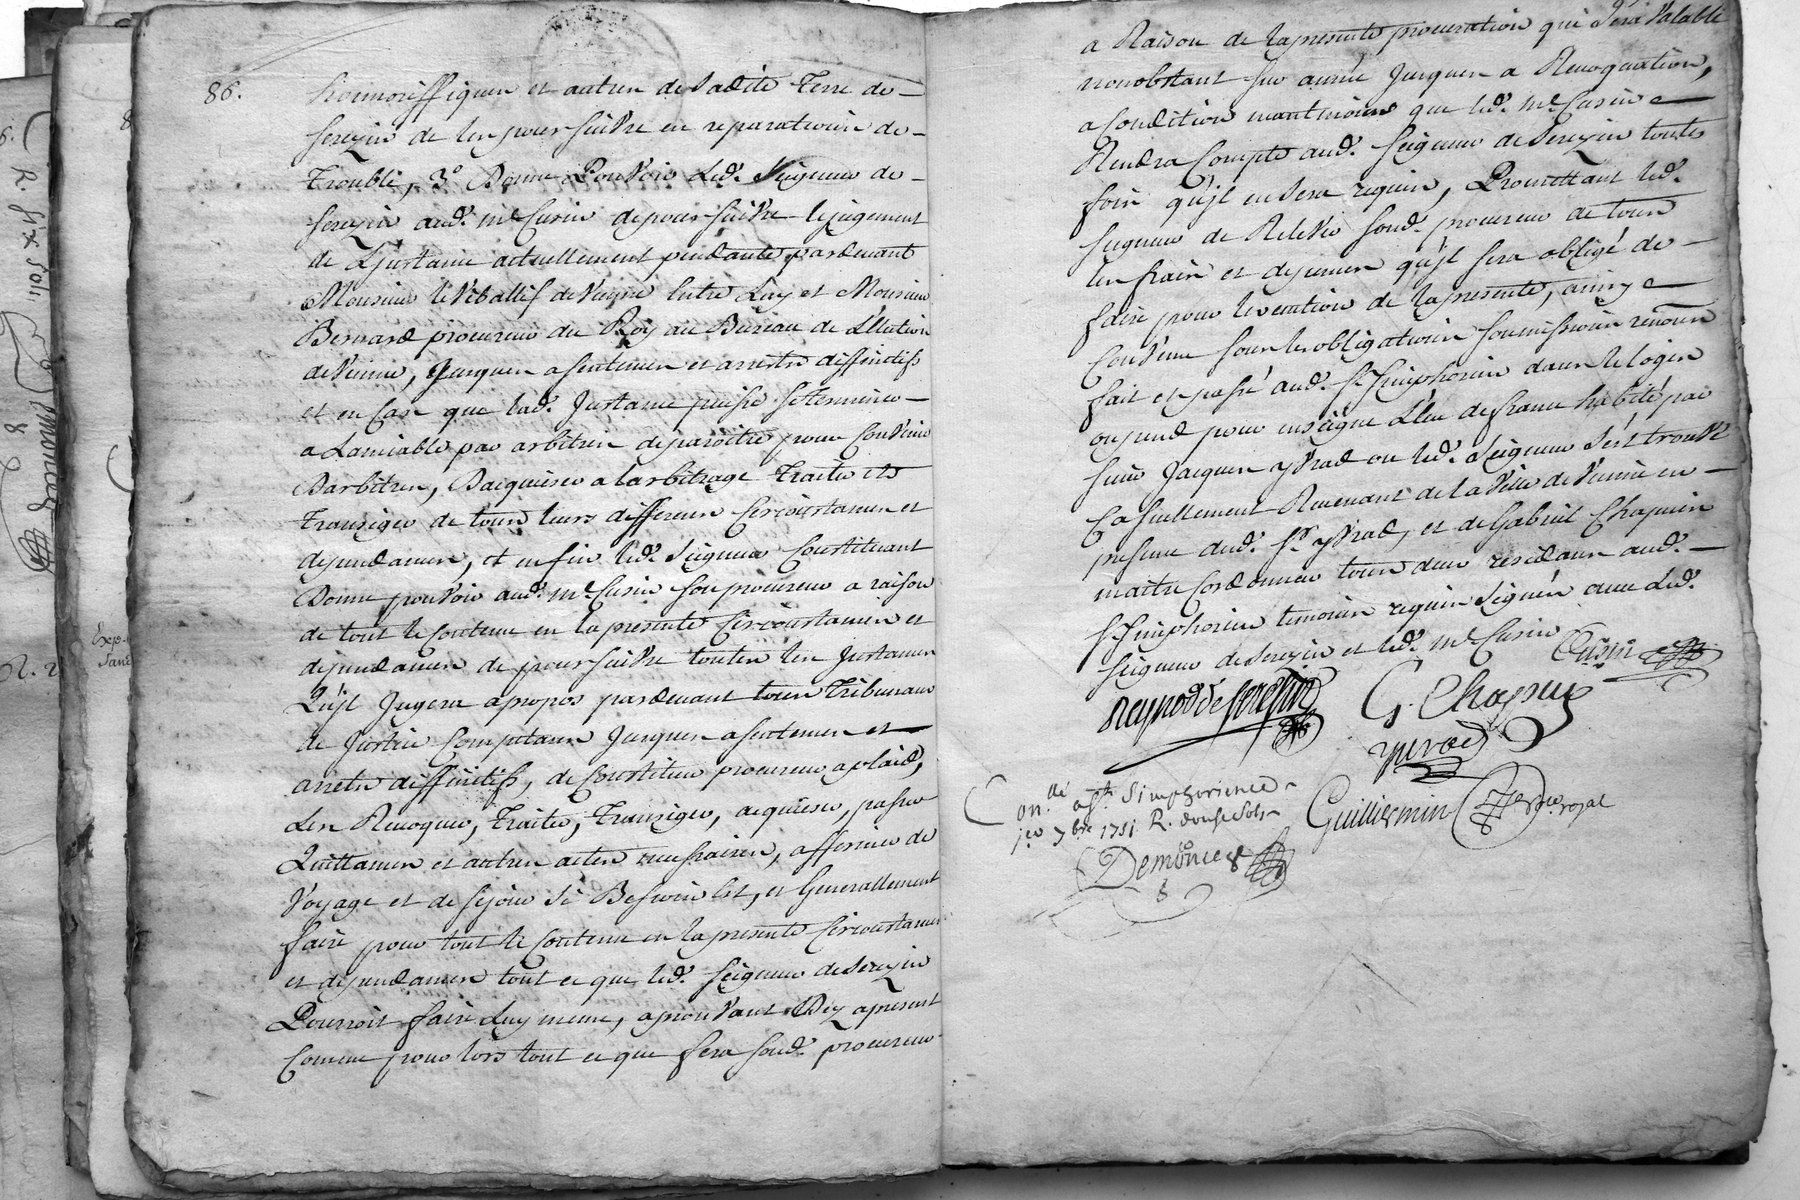 86.
honnoriffiques et autres de Sadite Terre de
serezin de les poursuivre en reparatioin de
Trouble, 3° Donne Pouvoir Led. Seigneur de
serezin aud. me Cusin de poursuivre le jugement
de L'jnstance actuellement pendante pardevant
Monsieur le Vibally de Vienne Entre Luy et Monsieur
Bernard procureur du Roy au Bureau de L'Election
de Vienne, jusques a sentences et arrests diffinitifs
et en Cas que lad. Jnstance puisse se Terminer
a Lamiable par arbitres de paroitre pour Convenir
Darbitres, Dacquiescer a larbitrage Traiter et
Transiger de tous leurs differens Circonstances et
dependances, et enfin led. Seigneur Constituant
Donne pouvoir aud. me Cusin son procureur a raison
de tout le Contenu en la presente Circonstances et
dependances de poursuivre toutes les Jnstances
Qu'jl Jugera apropos pardevant tous Tribunaux
de Justice Competans Jusques a sentences et
arrets diffinitifs, de Constituer procureur a plaid,
Les Revoquer, Traiter, Transiger, acquiescer, passer
Quittances et autres actes necessaires, affirmer de
Voyage et de sejour si Besoin Est, et Generallement
faire pour tout le Contenu en la presente Circonstances
et dependances tout ce que led. Seigneur de Serezin
Pourroit faire Luy meme, aprouvant Dez apresent
Comme pour lors tout ce que sera sond. procureur
a Raison de la presente procuration qui Sera Valable
nonobstant sur année Jusques a Revoquation,
a Condition neantmoins que led. me Cusin
Rendra Compte aud. Seigneur de Serezin toutes
fois qu'jl en sera requis, Promettant led.
seigneur de Relever sond. procureur de tous
Les frais et depences qu'jl sera obligé de
faire pour l'execution de la presente, ainsy
Convenu sous les obligatioins soumissioins renon.
fait et passé aud. St. simphorien dans le logis
ou pend pour enseigne L'Ecu de france habité par
sieur Jacques yvrad ou led. Seigneur S'est trouvé
Casuellement Revenant de la Ville de Vienne en
presence dud. Sr. yvrad, et de Gabriel Chapuis
maitre Cordonnier tous deux residans aud.
St. simphorien temoins requis signés avec led.
seigneur de Serezin et led. me Cusin
Cusin
Reynod de Serezin
G. Chapuy
yvrad
Con.lé a St. Simphorien ce
1er 7bre 1751 R. douse Sols
Guilliermin
nre royal
Demoncez